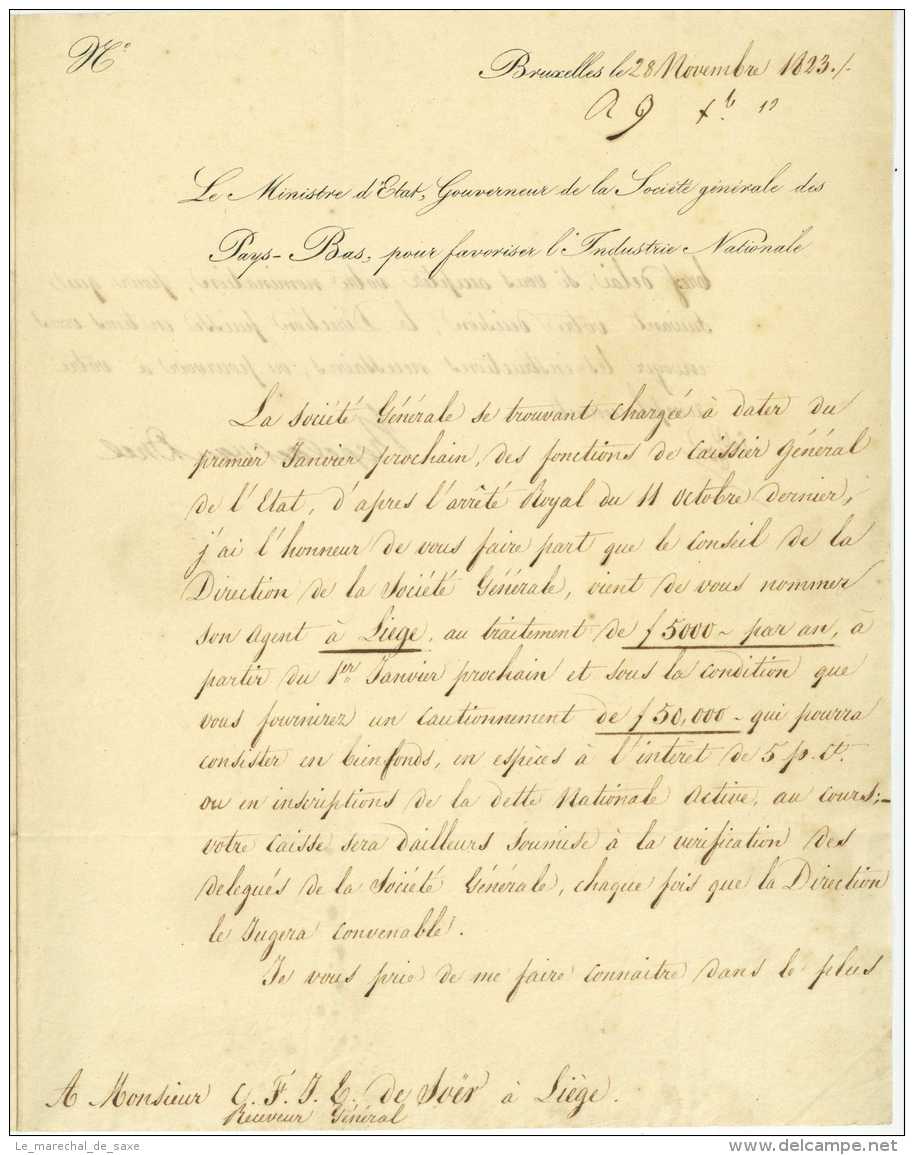 N.º
Bruxelles le 28 Novembre 1823./.
Le Ministre d'Etat, Gouverneur de la Société générale des
Pays-Bas, pour favoriser l'Industrie Nationale
La Société Générale se trouvant chargée à dater du
premier Janvier prochain, des fonctions de Caissier Général
de l'Etat, d'apres l'arrêté Royal du 11 octobre dernier,
j'ai l'honneur de vous faire part que le Conseil de la
Direction de la Société Générale, vient de vous nommer
son Agent à Liège, au traitement de f 5000 - par an, à
partir du 1er Janvier prochain et sous la condition que
vous fournirez un Cautionnement de f 50,000 - qui pourra
consister en bienfonds, en espèces à l'intéret de 5 p. Ct.
ou en inscriptions de la dette Nationale Active, au cours;-
votre Caisse sera d'ailleurs soumise à la vérification des
delegués de la Société Générale, chaque fois que la Direction
le Jugera convenable.
Je vous prie de me faire connaitre dans le plus
A Monsieur C. F. J. E. de Soër à Liège.
Receveur Général
Le_marechal_de_saxe
delcampe.net